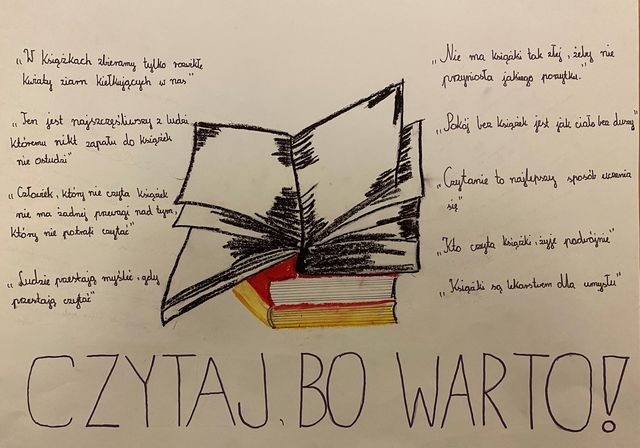 „W książkach zbieramy tylko rozwikłe
kwiaty ziarn kiełkujących w nas"
„Ten jest najszczęśliwszy z ludzi
któremu nikt zapału do książek
nie ostudzi"
„Człowiek, który nie czyta książek
nie ma żadnej przewagi nad tym,
który nie potrafi czytać"
„Ludzie przestają myśleć, gdy
przestają czytać"
„Nie ma książki tak złej, żeby nie
przyniosła jakiegoś pożytku."
„Pokój bez książek jest jak ciało bez duszy"
„Czytanie to najlepszy sposób uczenia
się"
„Kto czyta książki, żyje podwójnie"
„Książki są lekarstwem dla umysłu"
CZYTAJ, BO WARTO!